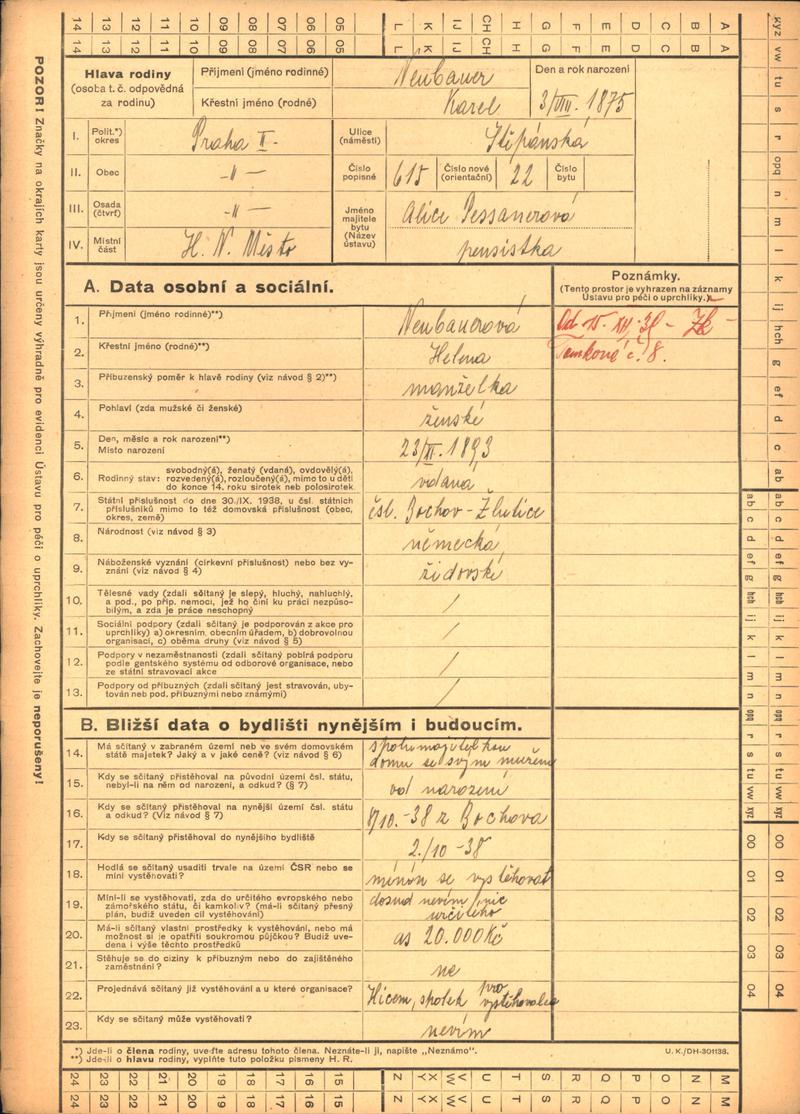 14 13 12 11 10 09 08 07 06 05 L K IJ CH H G F E D C B A
14 13 12 11 10 09 08 07 06 05 L K IJ CH H G F E D C B A
Hlava rodiny
(osoba t. č. odpovědná
za rodinu)
Příjmení (jméno rodinné) Neubauer
Křestní jméno (rodné) Karel
Den a rok narození
3/VIII. 1875
I. Polit.*) okres Praha II.
Ulice (náměstí) Štěpánská
II. Obec -"-
Číslo popisné 615 Číslo nové (orientační) 22 Číslo bytu
III. Osada (čtvrť) -"-
Jméno majitele bytu (Název ústavu) Alice
IV. Místní část H. N. Město
pensistka
A. Data osobní a sociální.
Poznámky.
(Tento prostor je vyhrazen na záznamy
Ústavu pro péči o uprchlíky.)
1. Příjmení (jméno rodinné)**) Neubauerová
2. Křestní jméno (rodné)**) Helena
č. 8.
3. Příbuzenský poměr k hlavě rodiny (viz návod § 2)**) manželka
4. Pohlaví (zda mužské či ženské) ženské
5. Den, měsíc a rok narození**)
Místo narození
23/XI. 1893
6. Rodinný stav: svobodný(á), ženatý (vdaná), ovdovělý(á),
rozvedený(á), rozloučený(á), mimo to u dětí
do konce 14. roku sirotek neb polosirotek
vdaná
7. Státní příslušnost do dne 30./IX. 1938, u čsl. státních
příslušníků mimo to též domovská příslušnost (obec,
okres, země)
čsl. Bochov - Žlutice
8. Národnost (viz návod § 3) německá
9. Náboženské vyznání (církevní příslušnost) nebo bez vy-
znání (viz návod § 4)
židovské
10. Tělesné vady (zdali sčítaný je slepý, hluchý, nahluchlý,
a pod., po příp. nemoci, jež ho činí ku práci nezpůso-
bilým, a zda je práce neschopný
/
11. Sociální podpory (zdali sčítaný je podporován z akce pro
uprchlíky) a) okresním, obecním úřadem, b) dobrovolnou
organisací, c) oběma druhy (viz návod § 5)
/
12. Podpory v nezaměstnanosti (zdali sčítaný pobírá podporu
podle gentského systému od odborové organisace, nebo
ze státní stravovací akce
/
13. Podpory od příbuzných (zdali sčítaný jest stravován, uby-
tován neb pod. příbuznými nebo známými)
/
B. Bližší data o bydlišti nynějším i budoucím.
14. Má sčítaný v zabraném území neb ve svém domovském
státě majetek? Jaký a v jaké ceně? (viz návod § 6)
spolumajitelkou
domu se svým mužem
15. Kdy se sčítaný přistěhoval na původní území čsl. státu,
nebyl-li na něm od narození, a odkud? (§ 7)
od narození
16. Kdy se sčítaný přistěhoval na nynější území čsl. státu
a odkud? (Viz návod § 7)
10.-38 z Bochova
17. Kdy se sčítaný přistěhoval do nynějšího bydliště
2./10 -38
18. Hodlá se sčítaný usaditi trvale na území ČSR nebo se
míní vystěhovati?
míním se vystěhovat
19. Míní-li se vystěhovati, zda do určitého evropského nebo
zámořského státu, či kamkoliv? (má-li sčítaný přesný
plán, budiž uveden cíl vystěhování)
dosud nevím, nic
určitého
20. Má-li sčítaný vlastní prostředky k vystěhování, nebo má
možnost si je opatřiti soukromou půjčkou? Budiž uve-
dena i výše těchto prostředků
as 20.000 Kč
21. Stěhuje se do ciziny k příbuzným nebo do zajištěného
zaměstnání?
ne
22. Projednává sčítaný již vystěhování a u které organisace?
Hicem, spolek pro
vystěhovalce
23. Kdy se sčítaný může vystěhovati?
nevím
*) Jde-li o člena rodiny, uveďte adresu tohoto člena. Neznáte-li ji, napište „Neznámo“.
**) Jde-li o hlavu rodiny, vyplňte tuto položku písmeny H. R.
U. K./DH-301138.
24 23 22 21 20 19 18 17 16 15 Z XY VW U T S R Q P O N M
24 23 22 21 20 19 18 17 16 15 Z XY VW U T S R Q P O N M
POZOR! Značky na okrajích karty jsou určeny výhradně pro evidenci Ústavu pro péči o uprchlíky. Zachovejte je neporušeny!
xyz vw tu s r opq n m l k ij hch g ef d c ab
ab c d ef g hch ij k l m n opq r s tu vw xyz 00 01 02 03 04
ab c d ef g hch ij k l m n opq r s tu vw xyz 00 01 02 03 04